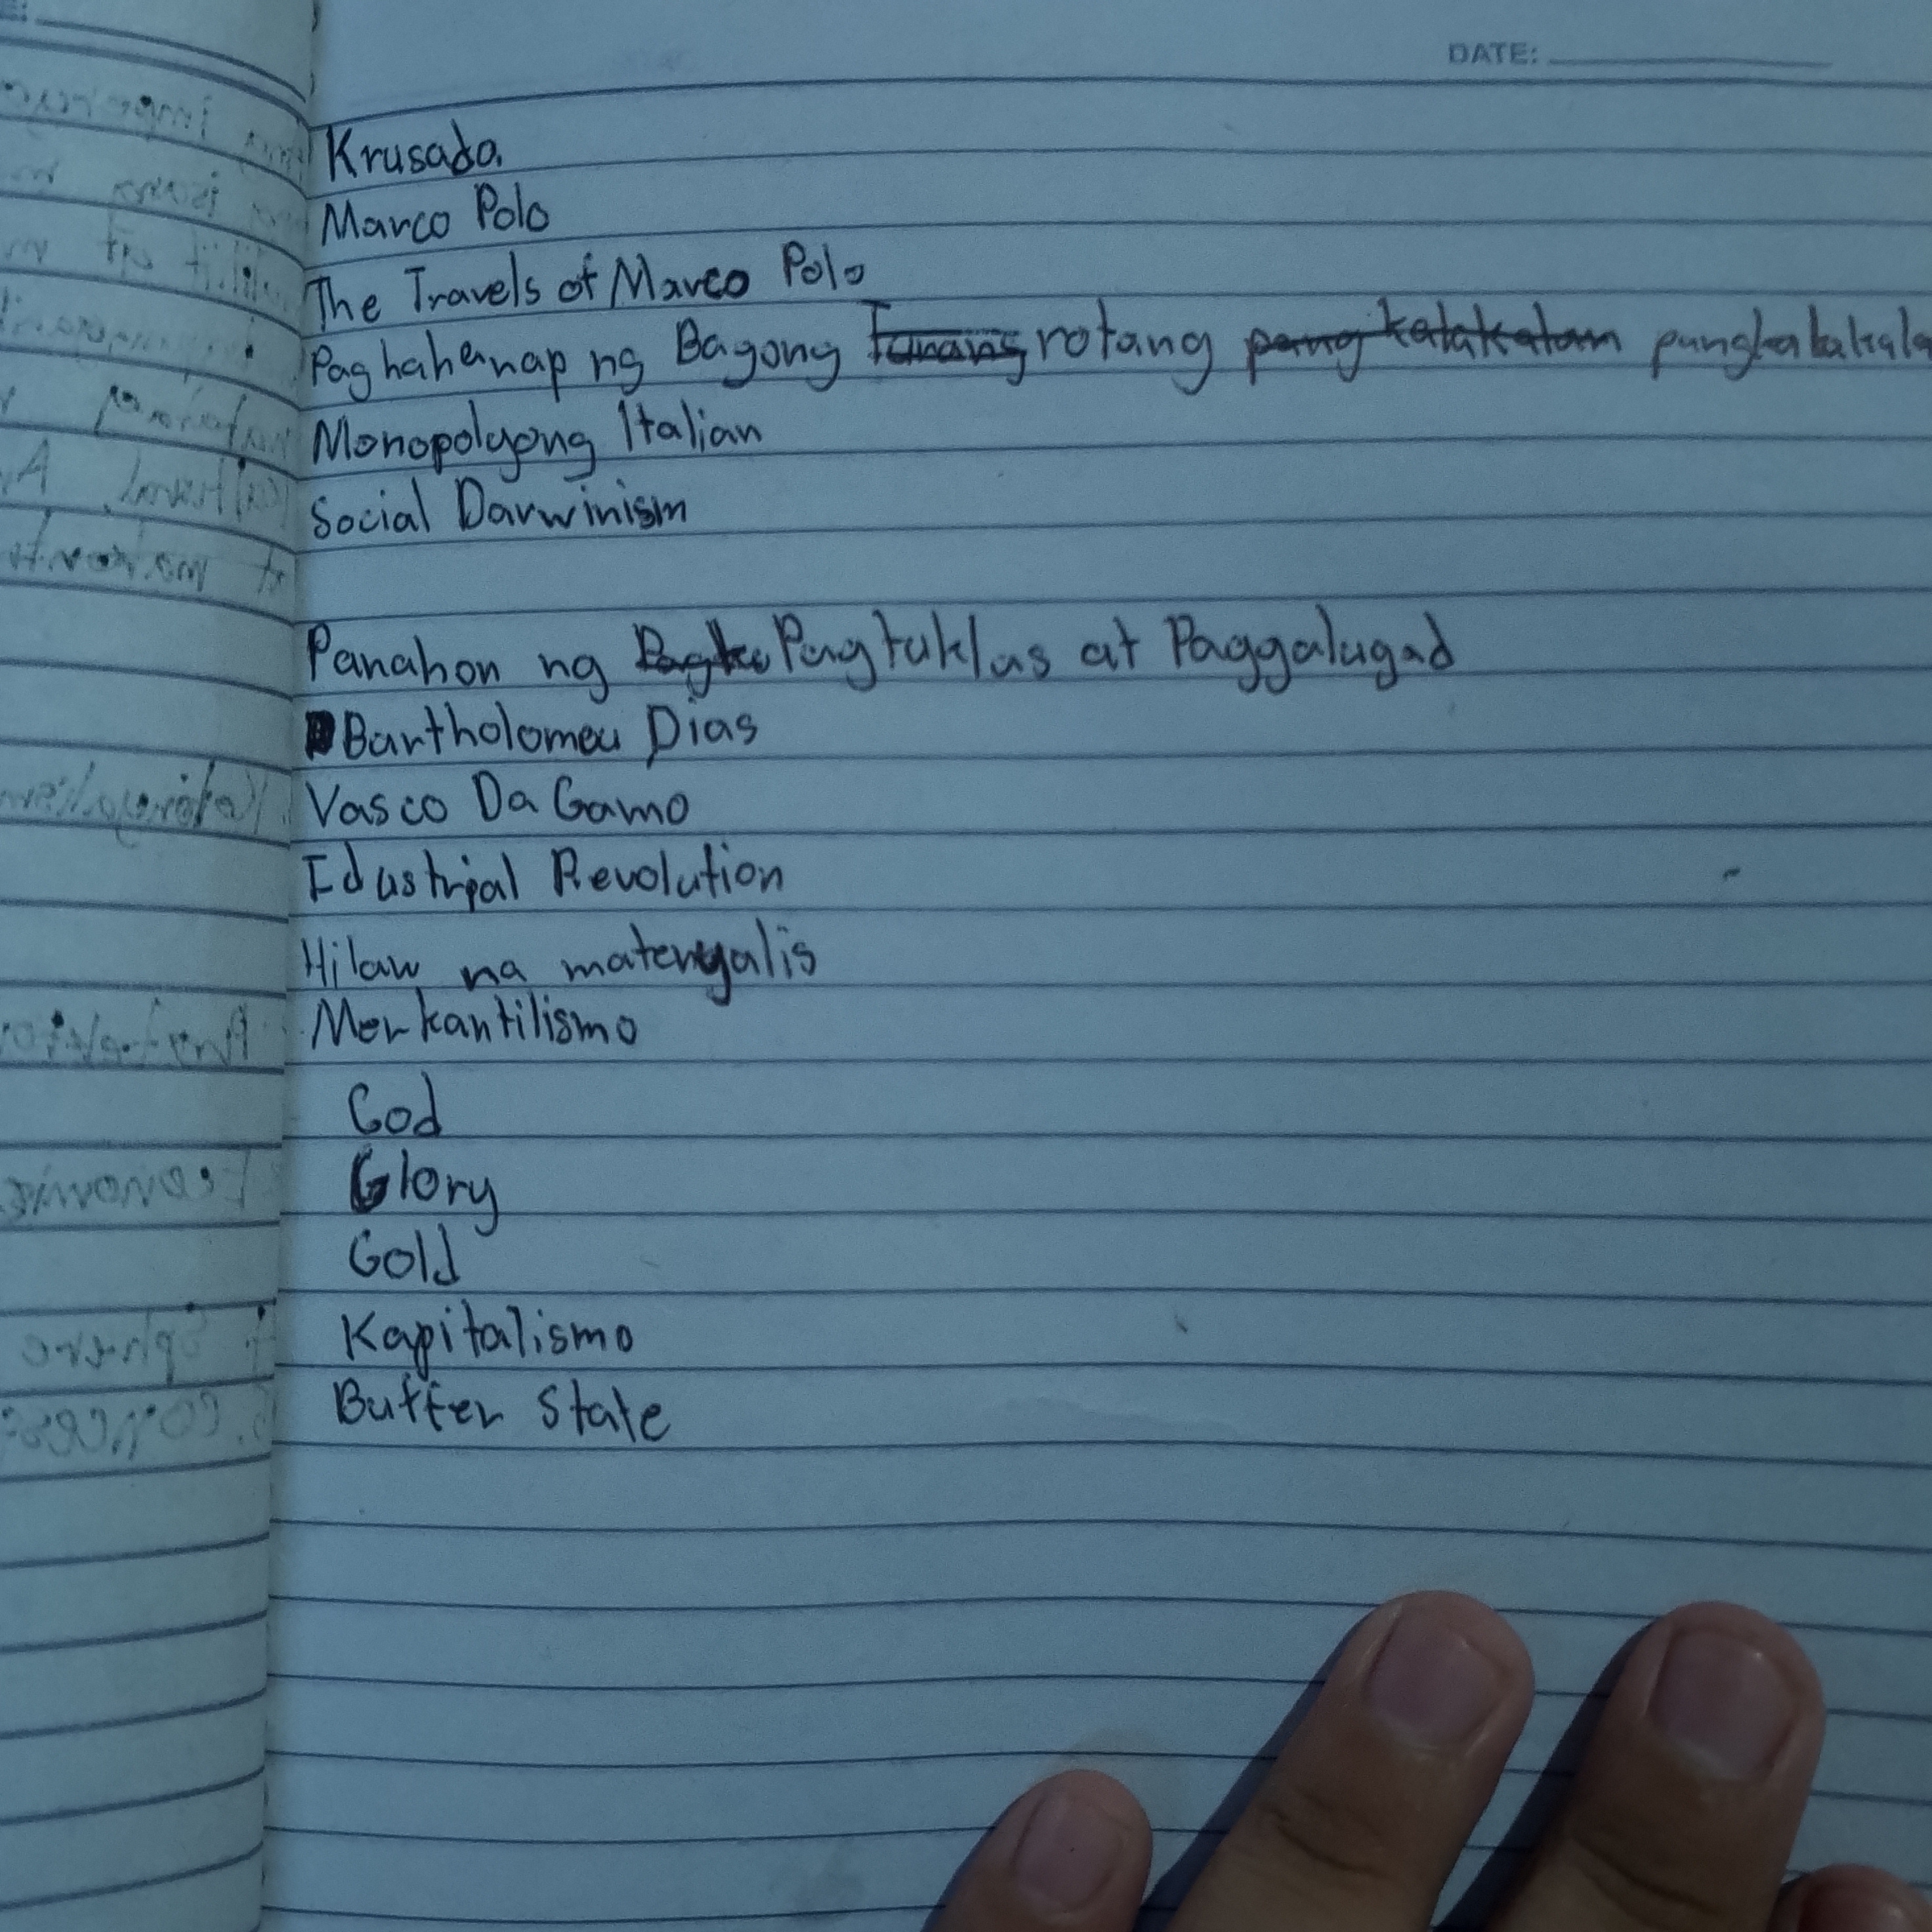 DATE:
Krusada
Marco Polo
The Travels of Marco Polo
Paghahanap ng Bagong rotang pangkalakala
Monopolyong Italian
Social Darwinism
Panahon ng Pagtuklas at Paggalugad
Bartholomeu Dias
Vasco Da Gamo
Idustrial Revolution
Hilaw na materyalis
Merkantilismo
God
Glory
Gold
Kapitalismo
Buffer State